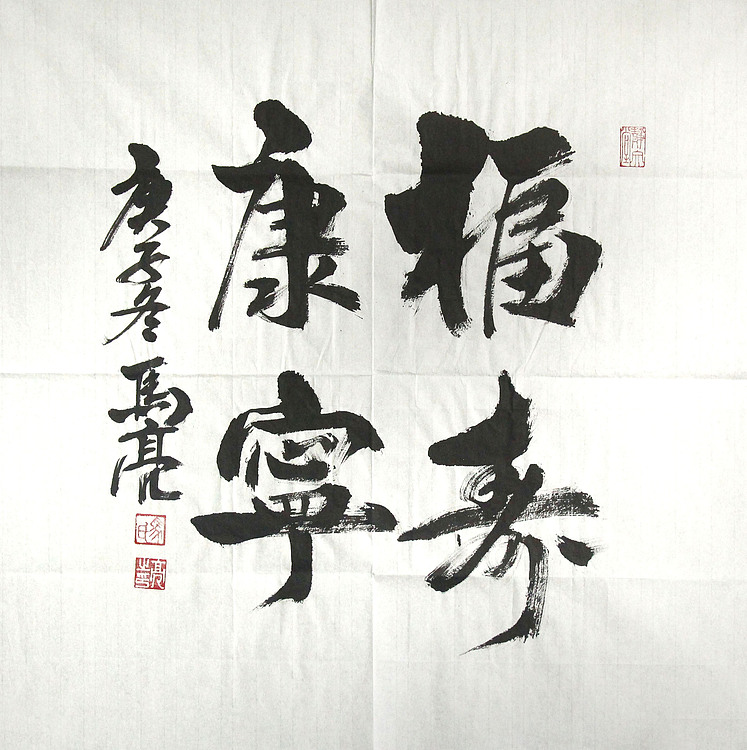 福寿
康寧
庚子冬馬亮